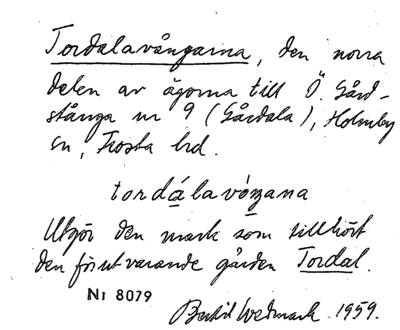 Tordalavångarna, den norra
delen av ägorna till Ö. Gård-
stånga nr 9 (Gårdala), Holmby
sn, Frosta hd.
tordálavóŋana
Utgör den mark som tillhört
den förutvarande gården Tordal.
Nr 8079
Bertil Wedmark 1959.